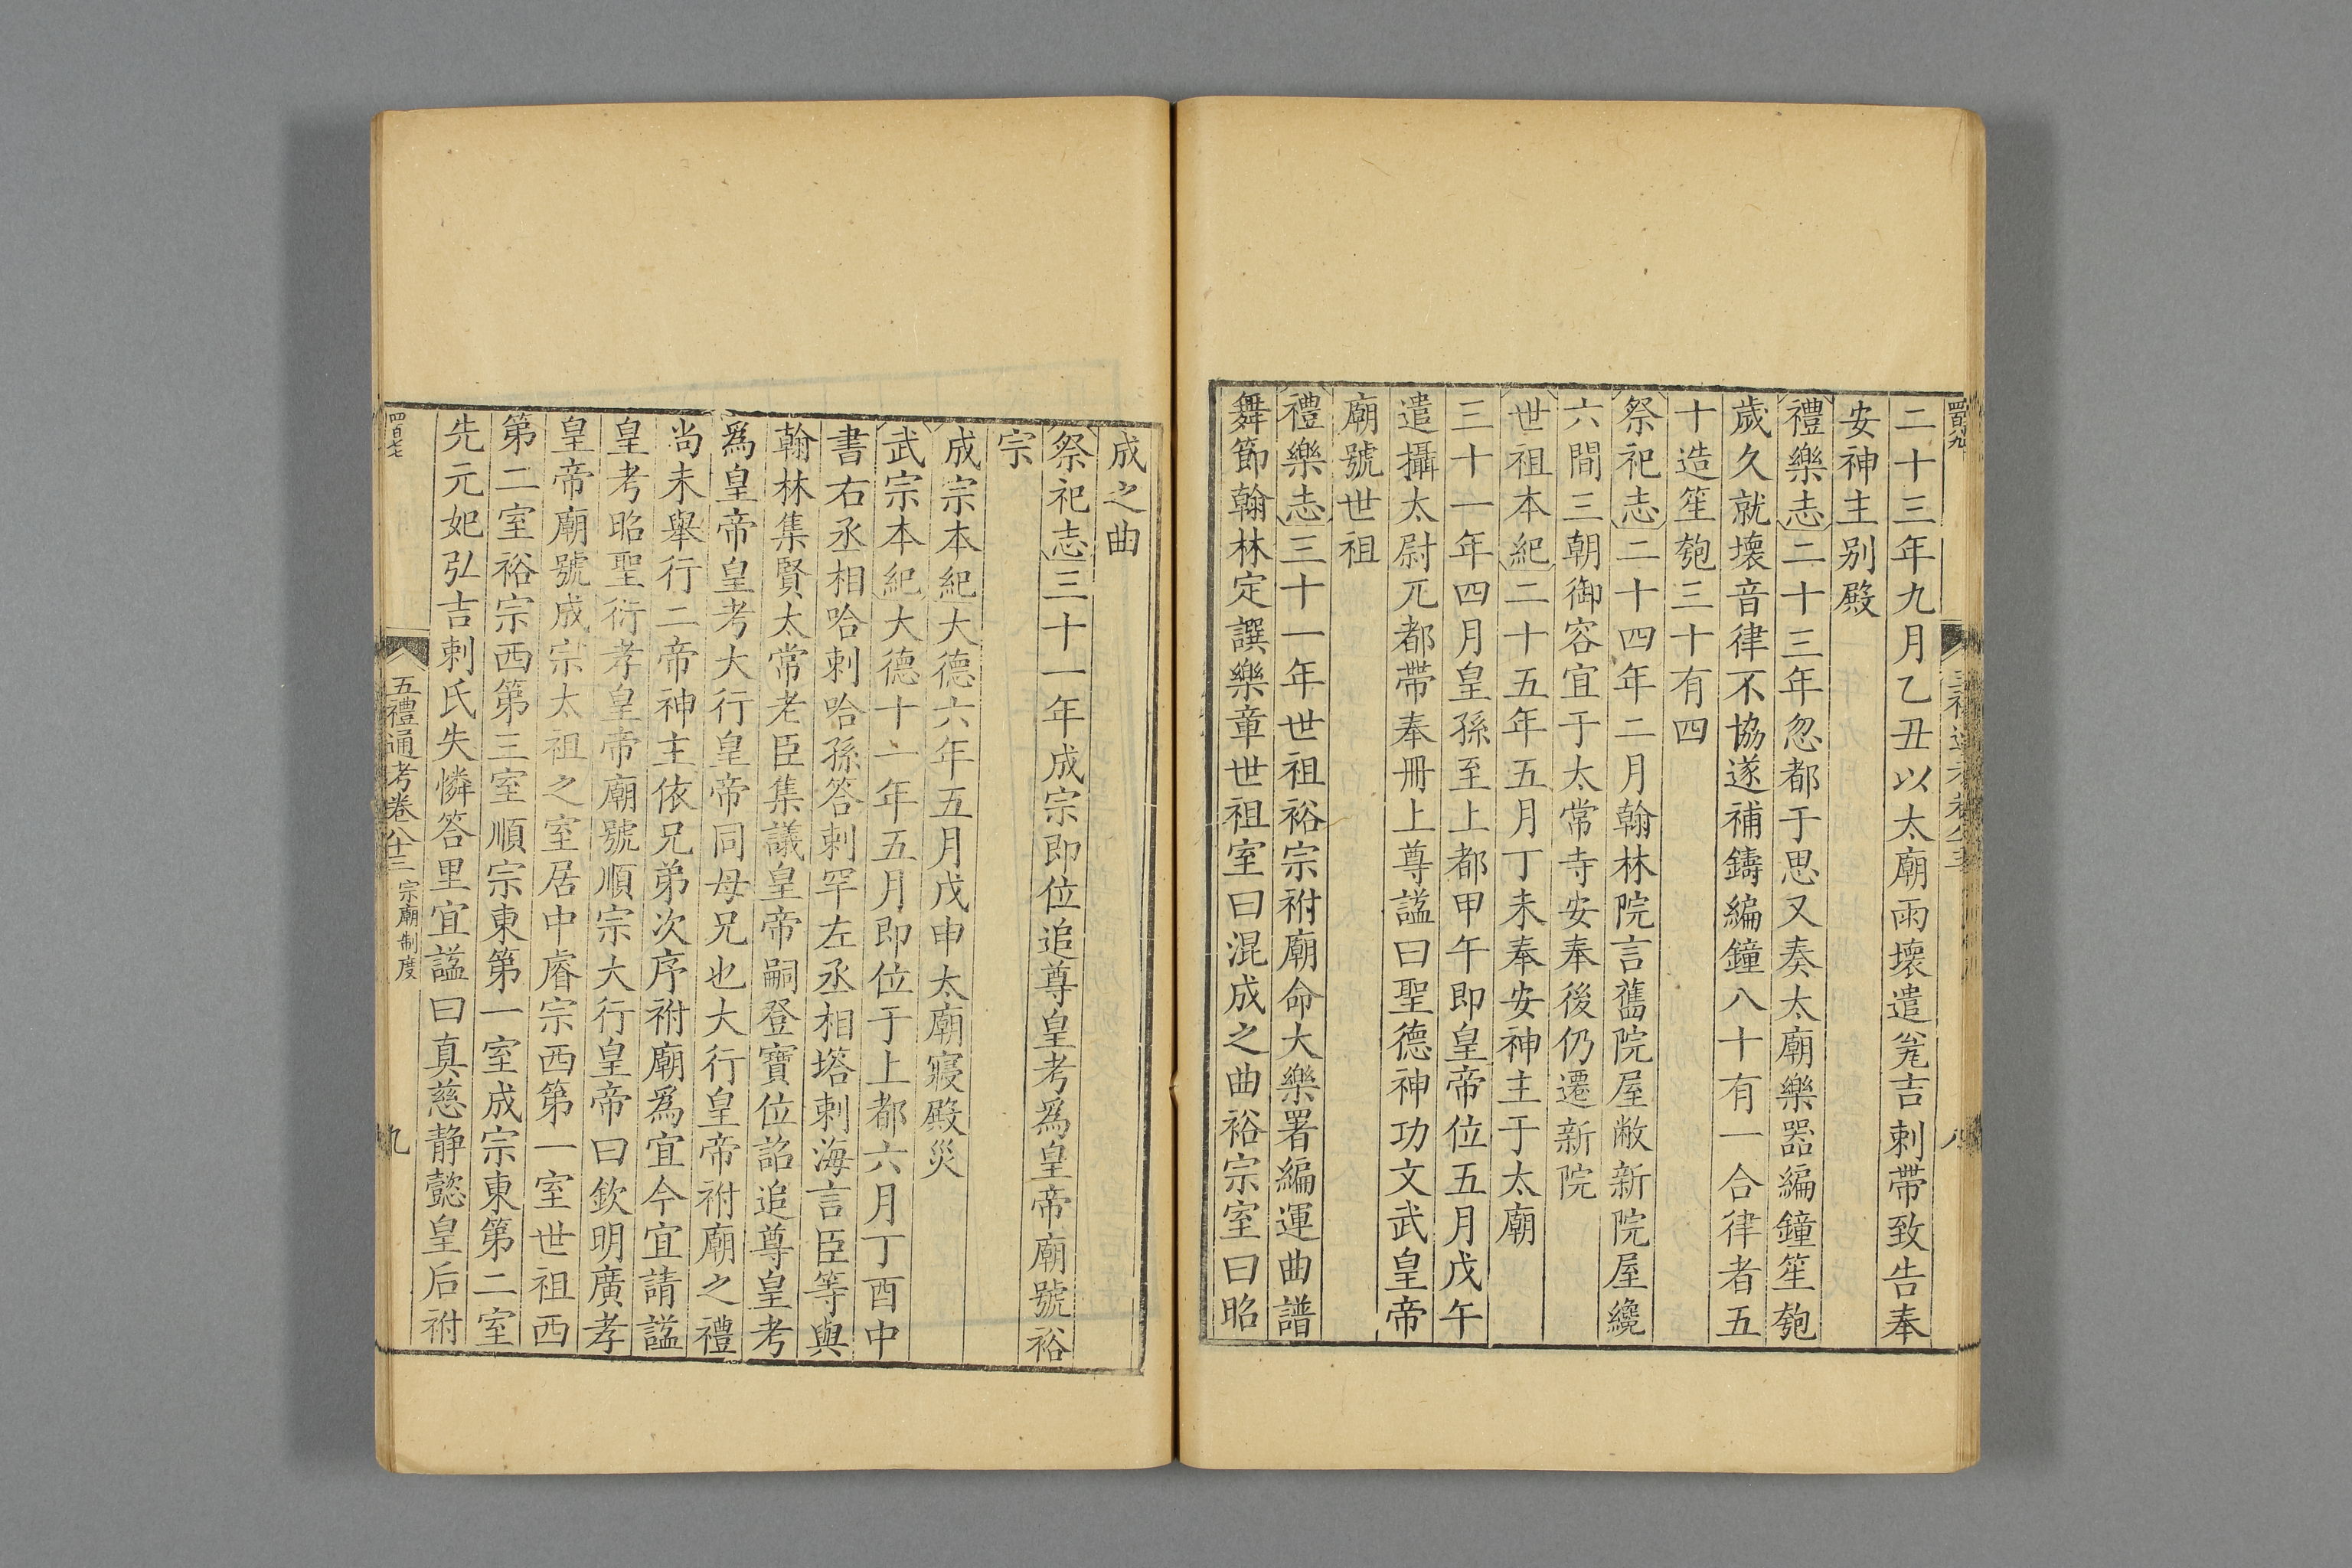 四百九
二十三年九月乙丑以太廟雨壞遣瓮吉剌帶致告奉
安神主别殿
禮樂志二十三年忽都于思又奏太廟樂器編鐘笙匏
歲久就壞音律不協遂補鑄編鐘八十有一合律者五
十造笙匏三十有四
祭祀志二十四年二月翰林院言舊院屋敝新院屋纔
六間三朝御容宜于太常寺安奉後仍遷新院
世祖本紀二十五年五月丁未奉安神主于太廟
三十一年四月皇孫至上都甲午即皇帝位五月戊午
遣攝太尉兀都帶奉冊上尊諡曰聖德神功文武皇帝
廟號世祖
禮樂志三十一年世祖裕宗祔廟命大樂署編運曲譜
舞節翰林定譔樂章世祖室曰混成之曲裕宗室曰昭
成之曲
祭祀志三十一年成宗即位追尊皇考爲皇帝廟號裕
宗
成宗本紀大德六年五月戊申太廟寢殿災
武宗本紀大德十一年五月即位于上都六月丁酉中
書右丞相哈剌哈孫答剌罕左丞相塔剌海言臣等與
翰林集賢太常老臣集議皇帝嗣登寶位詔追尊皇考
爲皇帝皇考大行皇帝同母兄也大行皇帝祔廟之禮
尚未舉行二帝神主依兄弟次序祔廟爲宜今宜請諡
皇考昭聖衍孝皇帝廟號順宗大行皇帝曰欽明廣孝
皇帝廟號成宗太祖之室居中睿宗西第一室世祖西
第二室裕宗西第三室順宗東第一室成宗東第二室
先元妃弘吉剌氏失憐答里宜諡曰真慈静懿皇后祔
四百七
五禮通考卷八十三 宗廟制度
九